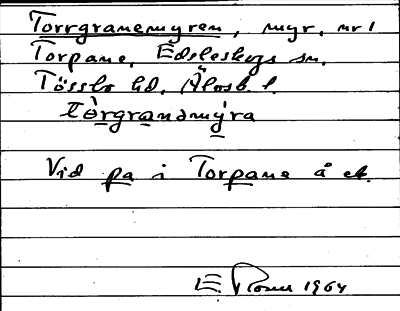 Torrgranemyren, myr, nr 1
Torpane, Edsleskogs sn.
Tössbo hd, Älvsb. l.
tòrgranəmy̍ra
Vid pa i Torpane å ek.
E. 1964